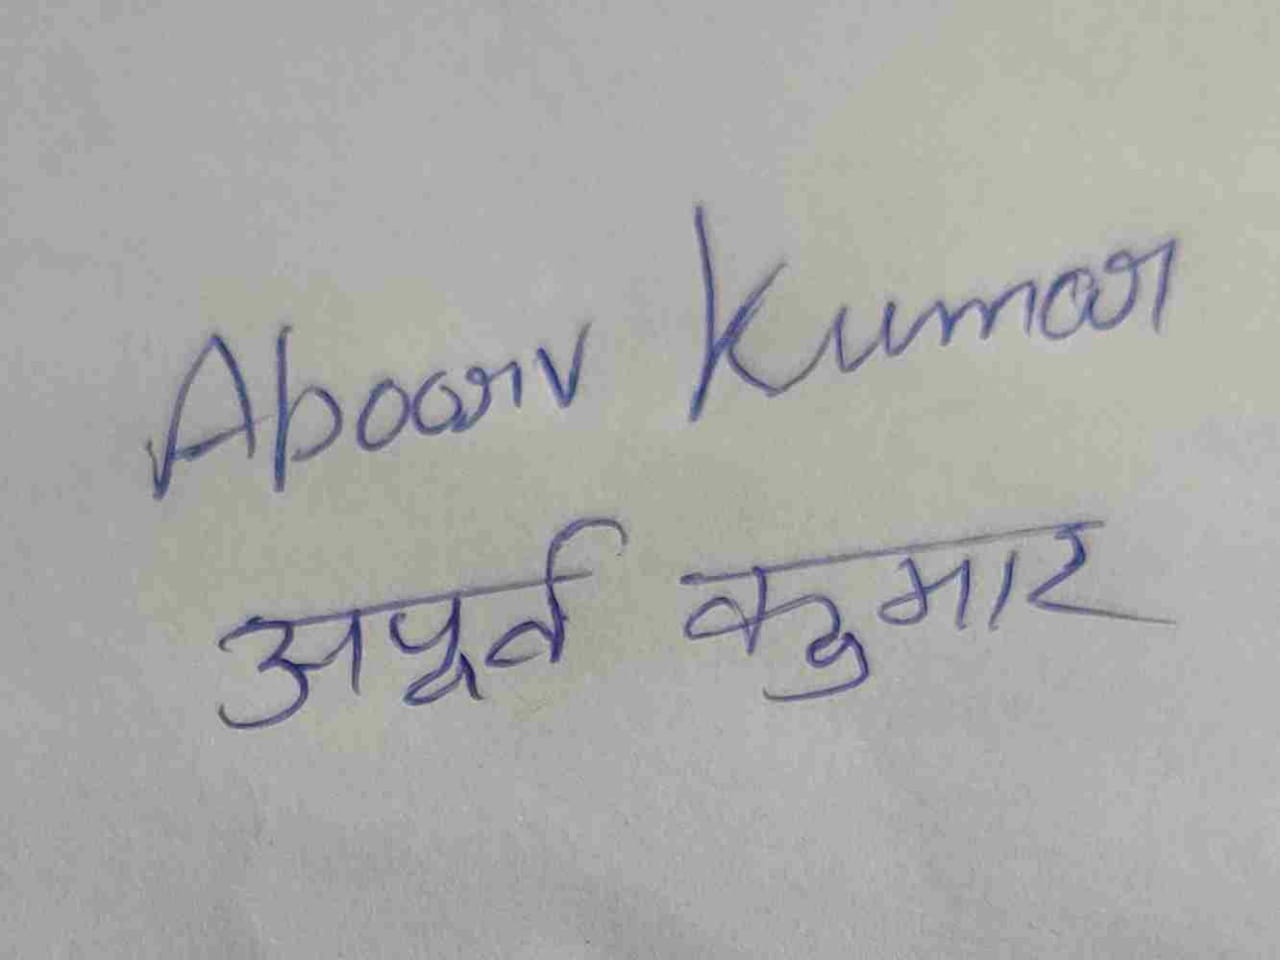 Apoorv Kumar
अपूर्व कुमार